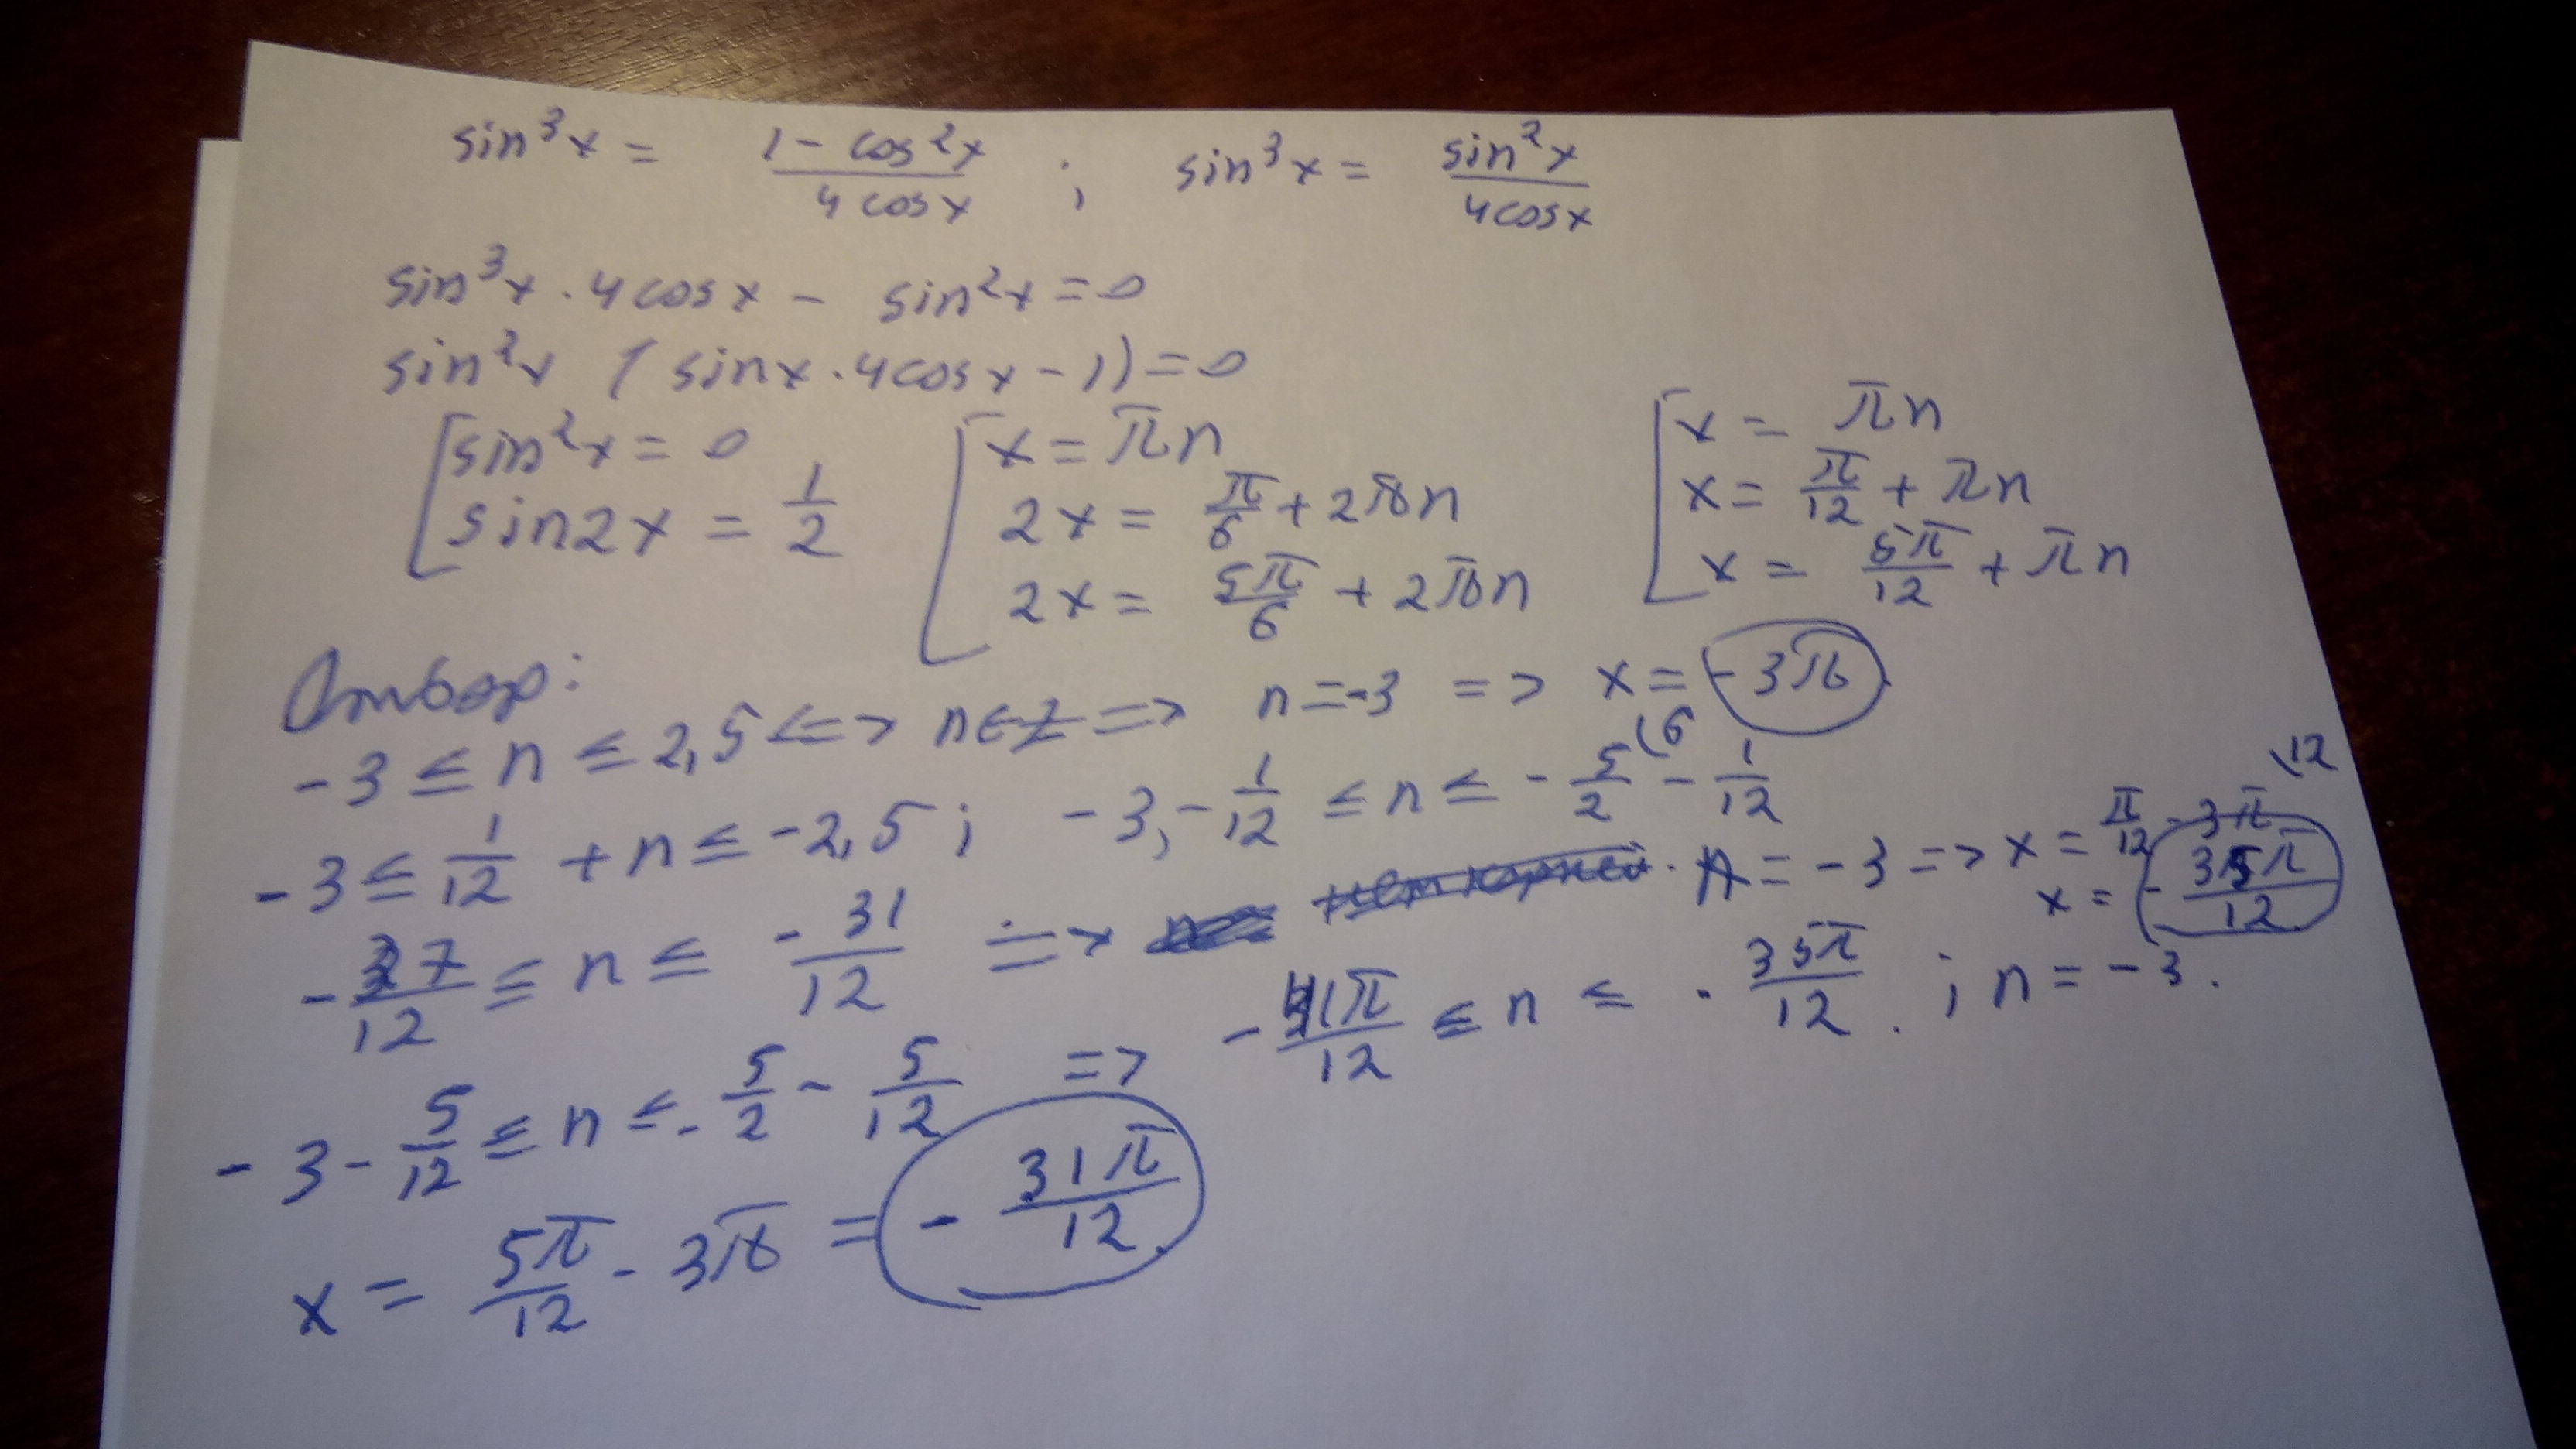 sin³x = (1 - cos²x)/(4cosx) ; sin³x = sin²x/(4cosx)
sin³x · 4cosx - sin²x = 0
sin²x (sinx · 4cosx - 1) = 0
[ sin²x = 0 [ x = πn [ x = πn
sin2x = 1/2 2x = π/6 + 2πn x = π/12 + πn
2x = 5π/6 + 2πn x = 5π/12 + πn
Отбор:
-3 ≤ n ≤ 2,5 <=> n∈Z => n = -3 => x = -3π.
-3 ≤ 1/12 + n ≤ -2,5 ; -3, - 1/12 ≤ n ≤ - 5/2 (6 - 1/12
-37/12 ≤ n ≤ -31/12 => нет корней. n = -3 => x = π/12 - 3π \12
x = -35π/12.
-3 - 5/12 ≤ n ≤ - 5/2 - 5/12 => - 41π/12 ≤ n ≤ - 35π/12. ; n = -3.
x = 5π/12 - 3π = - 31π/12.